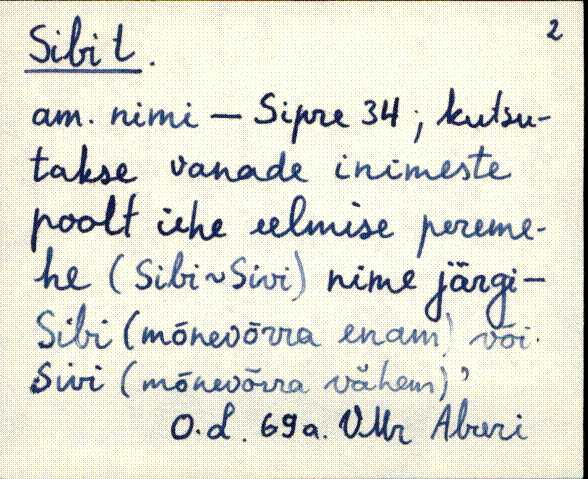 2
Sibi t.
am. nimi — Sipre 34 ; kutsu-
takse vanade inimeste
poolt ühe eelmise pereme-
he (Sibi ~ Sivi) nime järgi –
Sibi (mõnevõrra enam) või
Sivi (mõnevõrra vähem),
O.d. 69a. VMr Aburi